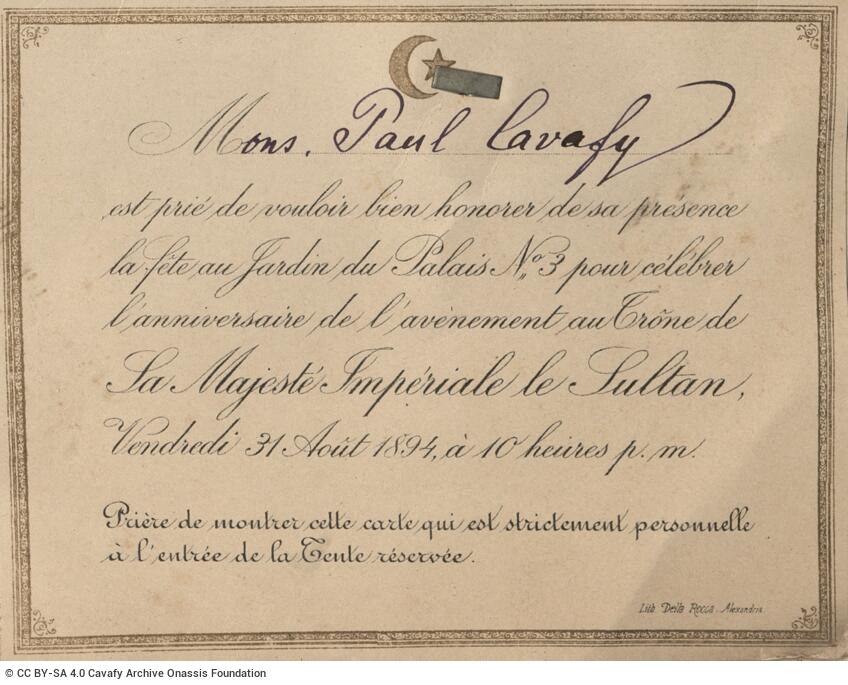 Mons. Paul Cavafy
est prié de vouloir bien honorer de sa présence
la fête au Jardin du Palais No. 3 pour célébrer
l'anniversaire de l'avènement au Trône de
Sa Majesté Impériale le Sultan,
Vendredi 31 Août 1894, à 10 heures p. m.
Prière de montrer cette carte qui est strictement personnelle
à l'entrée de la Tente réservée.
Lith. Della Rocca. Alexandrie.
© CC BY-SA 4.0 Cavafy Archive Onassis Foundation